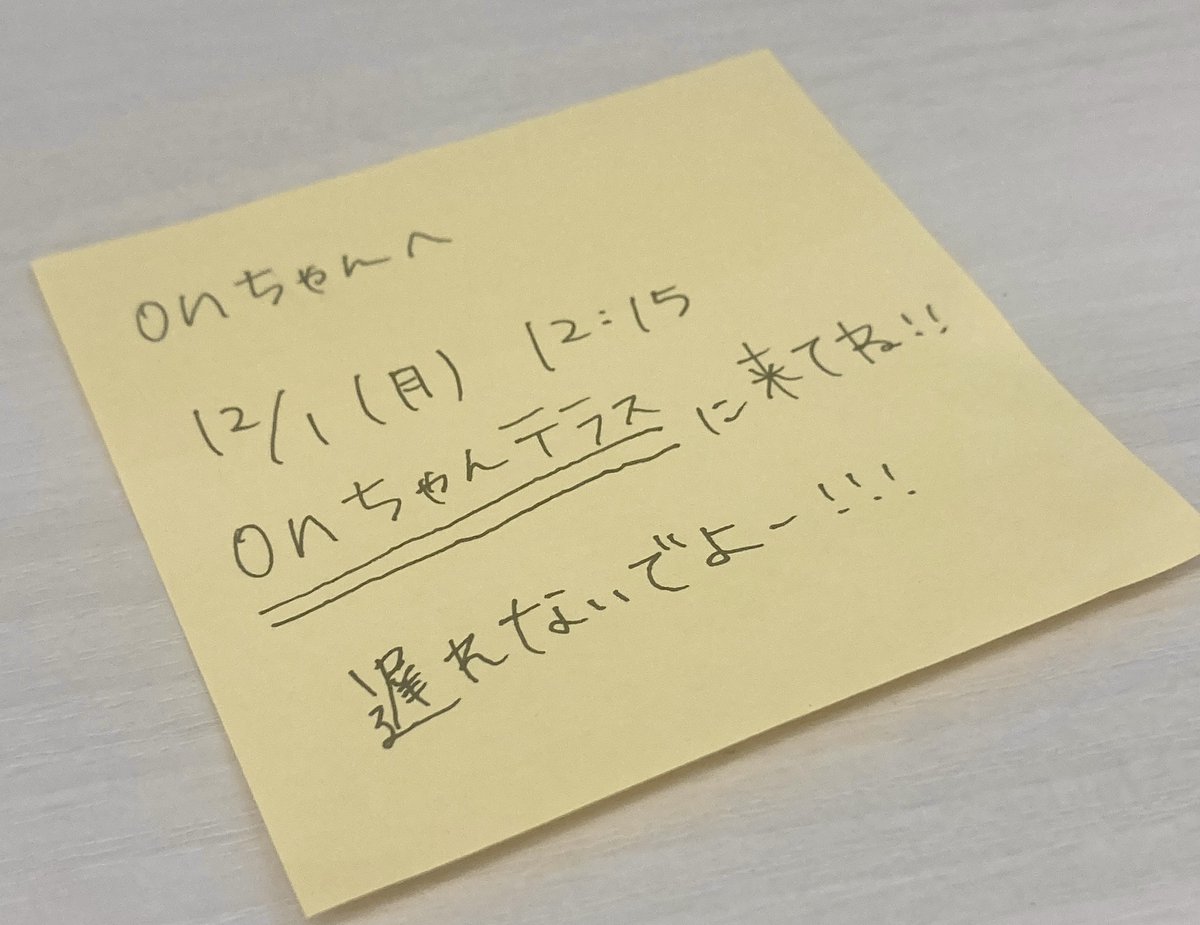 onちゃんへ
12/1(月) 12:15
onちゃんテラスに来てね!!
遅れないでよー!!!